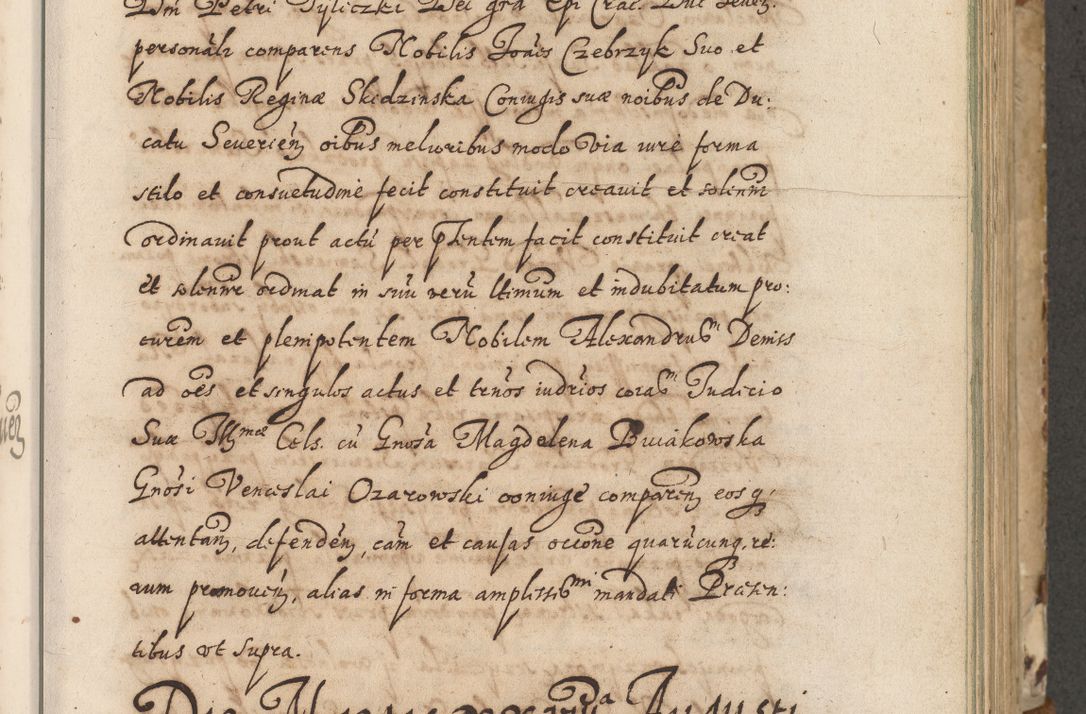 Dni Petri Tyliczki Dei gra Epi Crac. Duc Seuer.
personali comparens Nobilis Joães Czebrzyk Suo et
Nobilis Reginæ Skidzinska Coniugis suæ noibus de Du:
catu Seuerien oibus melioribus modo via iure forma
stilo et consuetudine fecit constituit creauit et solenm
ordinauit prout actu per pntentem facit constituit creat
et solenne ordinat in suu veru ltimum et indubitatum pro:
curem et plenipotentem Nobilem Alexandrum Demss
ad oes et singulos actus et trnos iudrios coram Judicio
Suæ Illmæ Cels. cu Gnosa Magdelena Bwiakowska
Gnosi Venceslai Ozarowski coniuge comparen eosq
attentan, defenden, cam et causas occone quarucunq. re:
rum promouen, alias in forma amplissimi mandati Præsen:
tibus vt supra.
Die Augusti